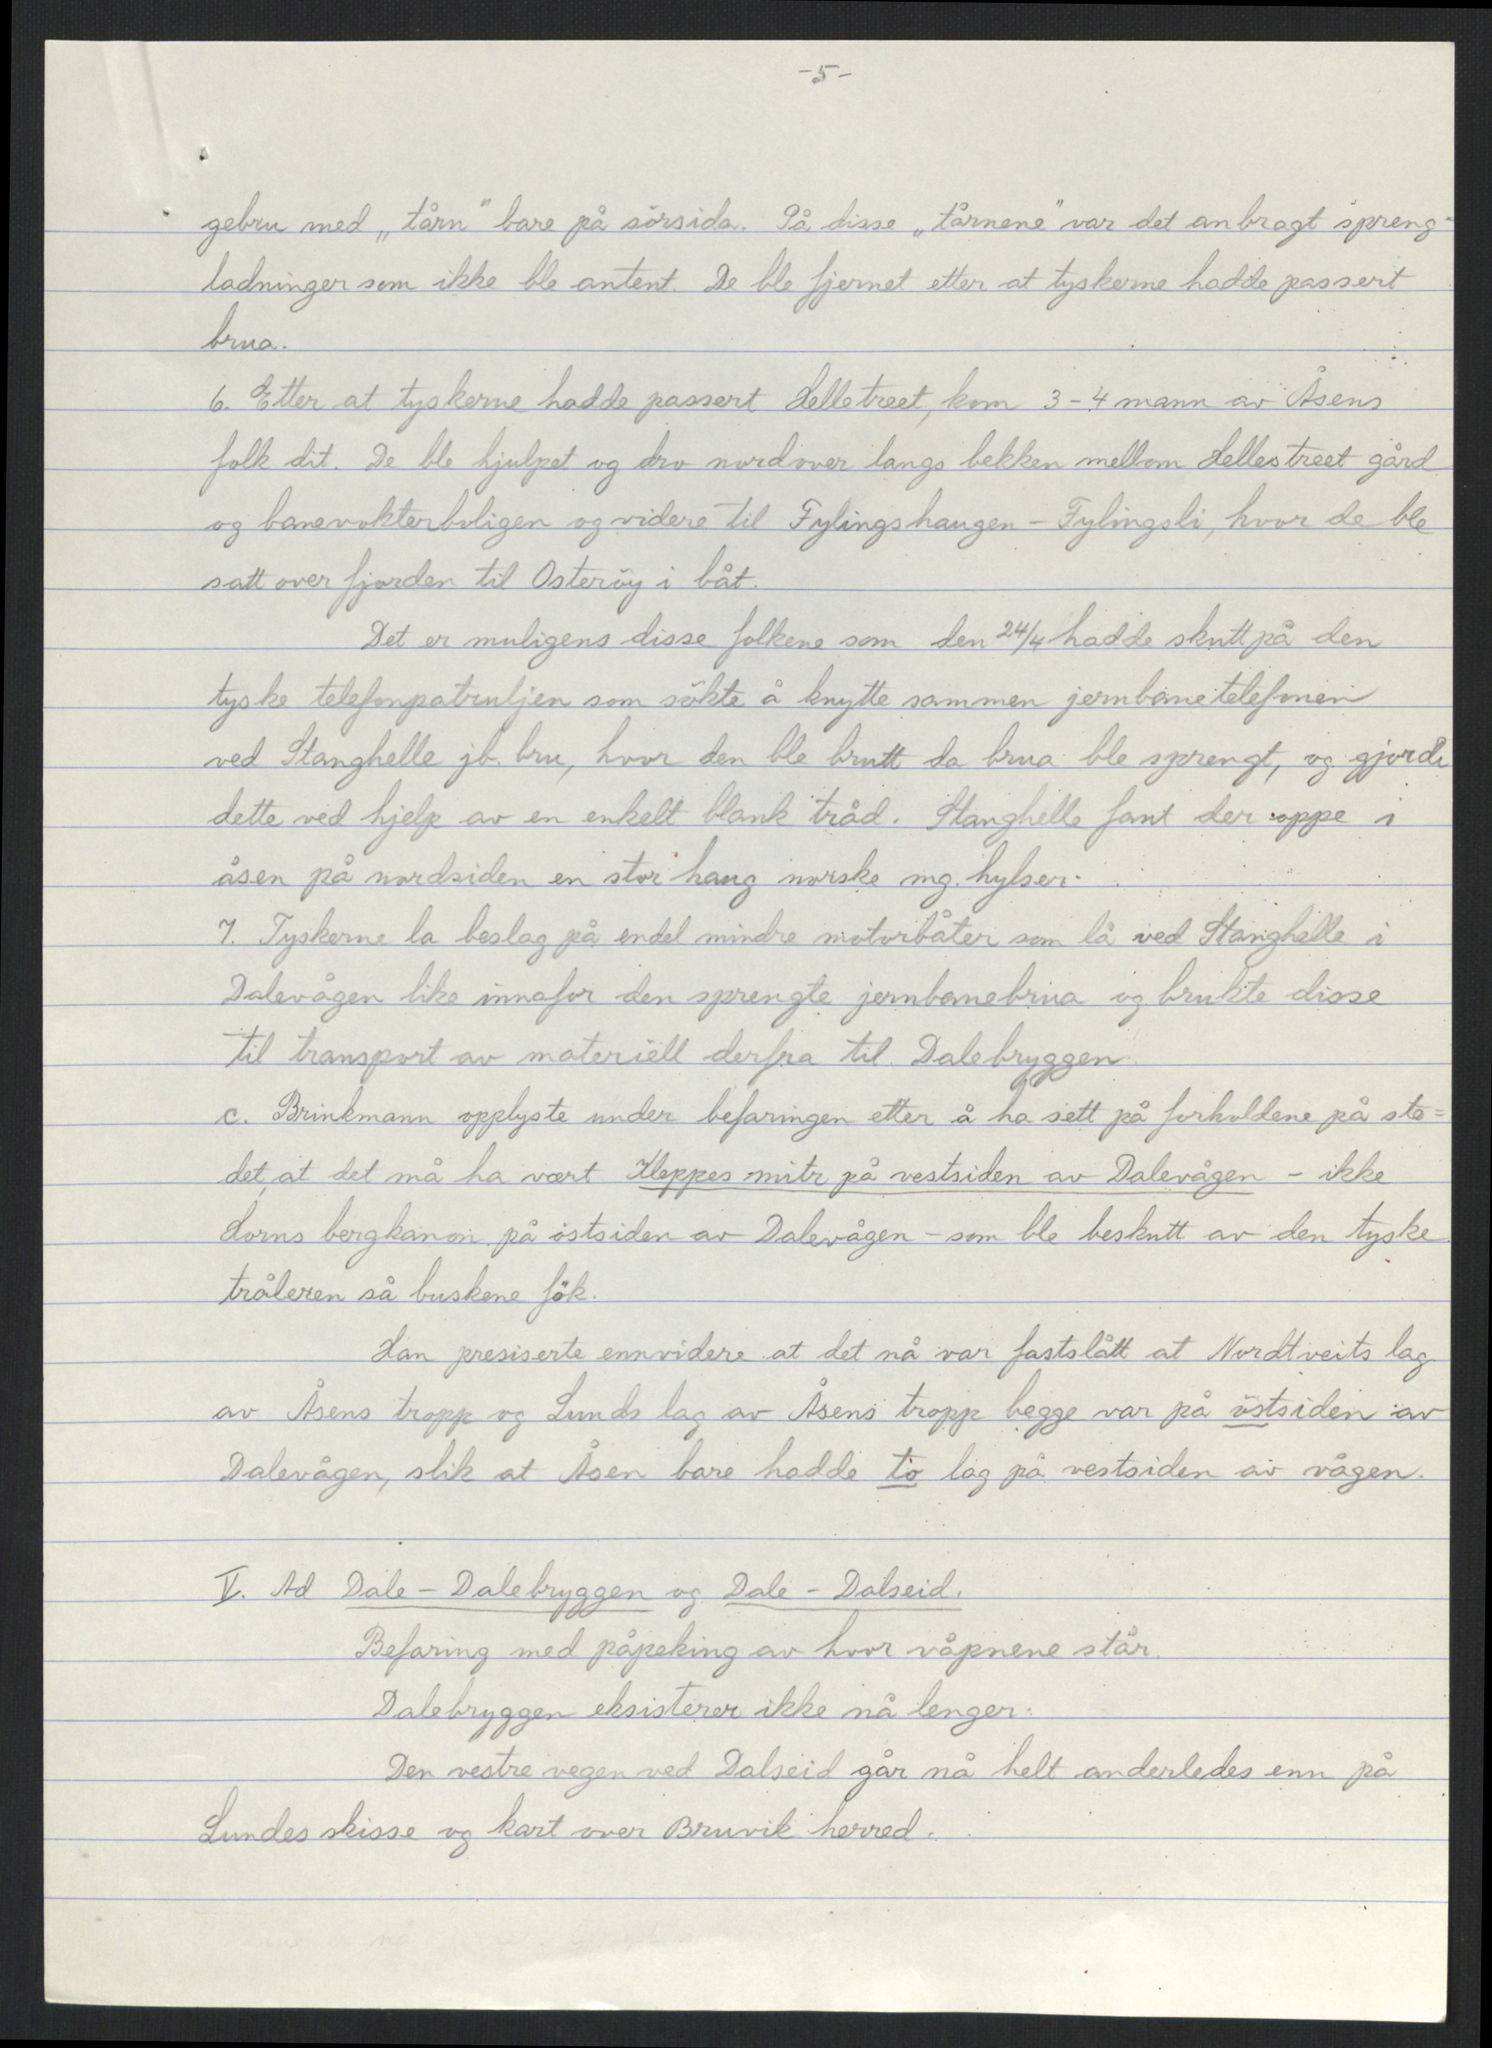 -5-
gebru med „tårn" bare på sörsida. På disse „tårnene" var det anbragt spreng-
ladninger som ikke ble antent. De ble fjernet etter at tyskerne hadde passert
brua.
6. Etter at tyskerne hadde passert Helletreet, kom 3-4 mann av Åsens
folk dit. De ble hjulpet og dro nordover langs bekken mellom Hellestreet gård
og banevokterboligen og videre til Fylingshaugen - Fylingsli, hvor de ble
satt over fjorden til Osteröy i båt.
Det er muligens disse folkene som den 24/4 hadde skutt på den
tyske telefonpatruljen som sökte å knytte sammen jernbanetelefonen
ved Stanghelle jb. bru, hvor den ble brutt da brua ble sprengt, og gjorde
dette ved hjelp av en enkelt blank tråd. Stanghelle fant der oppe i
åsen på nordsiden en stor haug norske mg. hylser.
7. Tyskerne la beslag på endel mindre motorbåter som lå ved Stanghelle i
Dalevågen like innafor den sprengte jernbanebrua og brukte disse
til transport av materiell derfra til Dalebryggen.
c. Brinkmann opplyste under befaringen etter å ha sett på forholdene på ste=
det, at det må ha vært Kleppes mitr på vestsiden av Dalevågen - ikke
Horns bergkanon på östsiden av Dalevågen - som ble beskutt av den tyske
tråleren så buskene fök.
Han presiserte ennvidere at det nå var fastslått at Nordtveits lag
av Åsens tropp og Lunds lag av Åsens tropp begge var på östsiden av
Dalevågen, slik at Åsen bare hadde to lag på vestsiden av vågen.
V. Ad Dale - Dalebryggen og Dale - Dalseid.
Befaring med påpeking av hvor våpnene står.
Dalebryggen eksisterer ikke nå lenger.
Den vestre vegen ved Dalseid går nå helt anderledes enn på
Lundes skisse og kart over Bruvik herred.